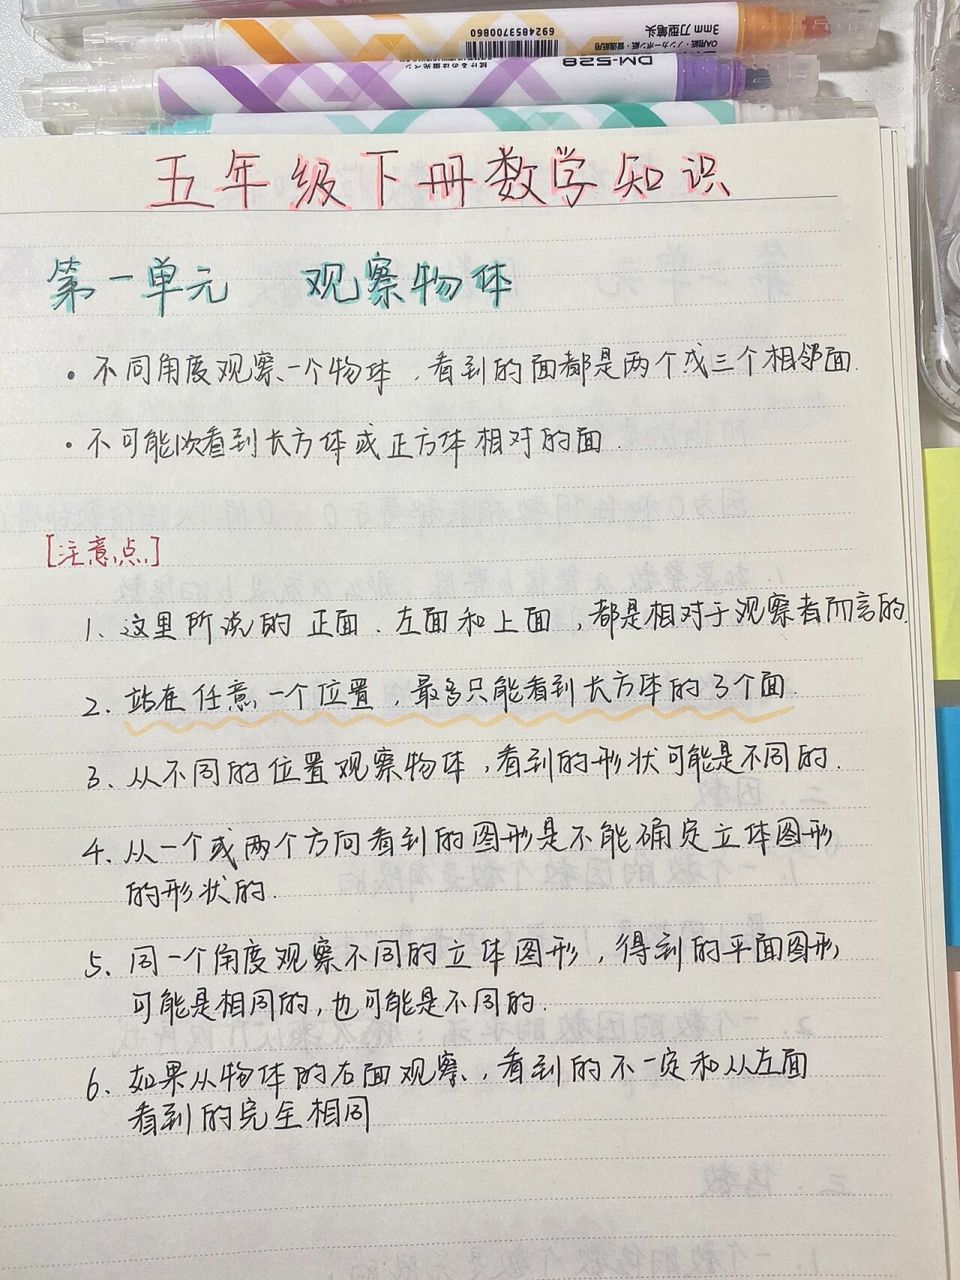 6924853700860
3mm 刀型笔头
DM-528
五年级下册数学知识
第一单元 观察物体
· 不同角度观察一个物体，看到的面都是两个或三个相邻面.
· 不可能次看到长方体或正方体相对的面.
[注意点]
1、这里所说的 正面、左面和上面，都是相对于观察者而言的.
2、站在任意一个位置，最多只能看到长方体的3个面.
3、从不同的位置观察物体，看到的形状可能是不同的.
4、从一个或两个方向看到的图形是不能确定立体图形
的形状的.
5、同一个角度观察不同的立体图形，得到的平面图形
可能是相同的，也可能是不同的.
6、如果从物体的右面观察，看到的不一定和从左面
看到的完全相同